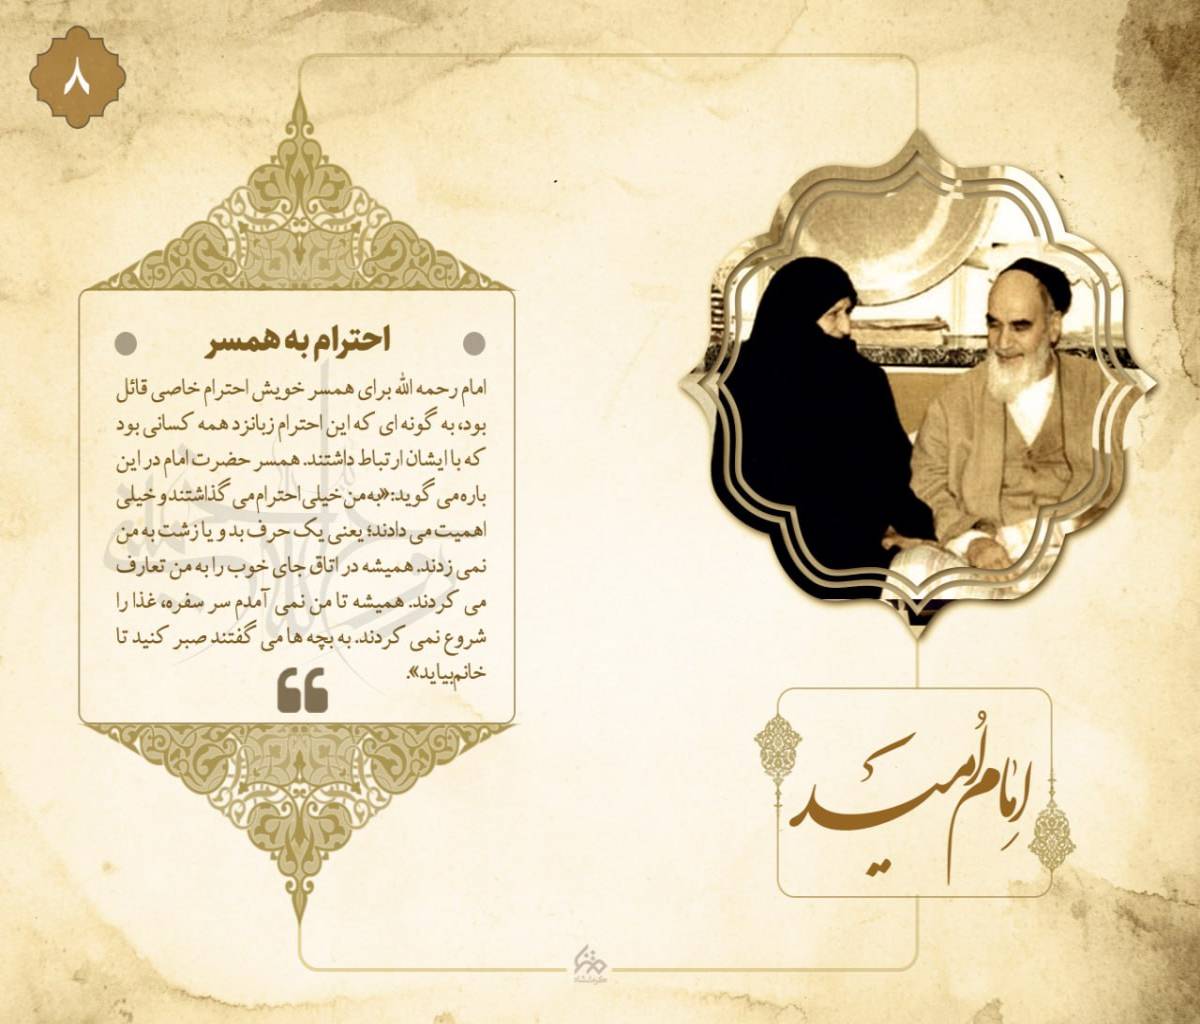 ۸
احترام به همسر
امام رحمه الله برای همسر خویش احترام خاصی قائل
بود، به گونه ای که این احترام زبانزد همه کسانی بود
که با ایشان ارتباط داشتند. همسر حضرت امام در این
باره می گوید: «به من خیلی احترام می گذاشتند و خیلی
اهمیت می دادند؛ یعنی یک حرف بد و یا زشت به من
نمی زدند. همیشه در اتاق جای خوب را به من تعارف
می کردند. همیشه تا من نمی آمدم سر سفره، غذا را
شروع نمی کردند. به بچه ها می گفتند صبر کنید تا
خانم بیاید».
امام اُمید